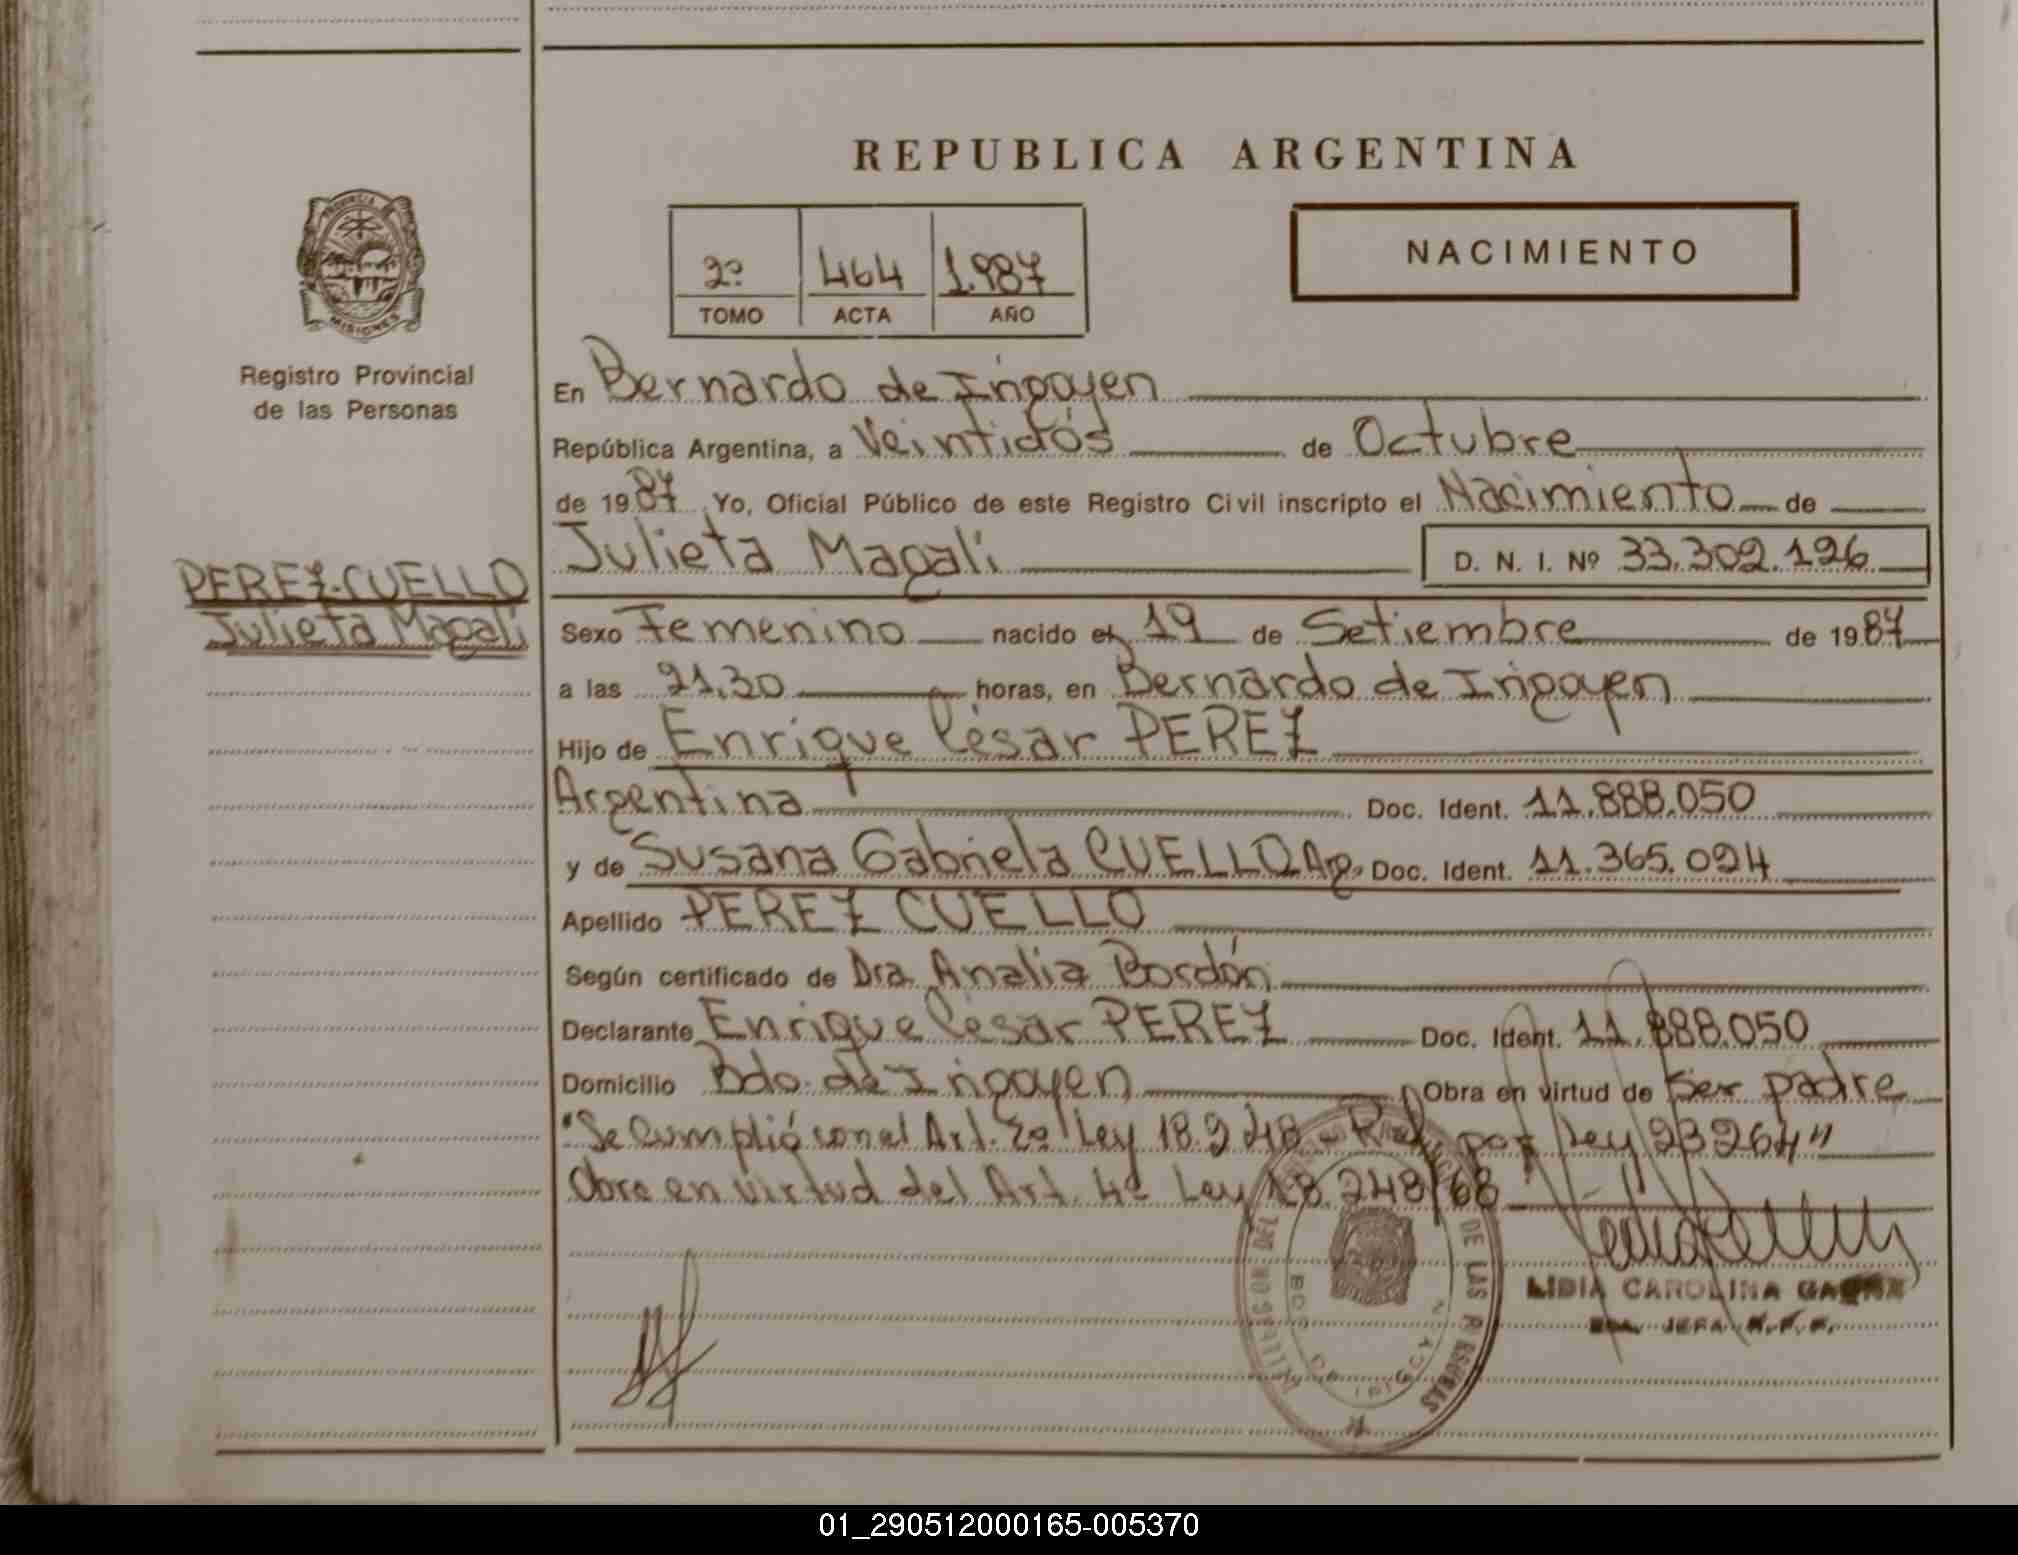 REPUBLICA ARGENTINA
NACIMIENTO
2º 464 1.987
TOMO ACTA AÑO
PROVINCIA DE
MISIONES
Registro Provincial
de las Personas
En Bernardo de Irigoyen
República Argentina, a Veintidós de Octubre
de 1987 Yo, Oficial Público de este Registro Civil inscripto el Nacimiento de
Julieta Magali D. N. I. Nº 33.302.126
PEREZ-CUELLO
Julieta Magali
Sexo Femenino nacido el 19 de Setiembre de 1987
a las 21.30 horas, en Bernardo de Irigoyen
Hijo de Enrique César PEREZ
Argentina Doc. Ident. 11.888.050
y de Susana Gabriela CUELLO Arg. Doc. Ident. 11.365.024
Apellido PEREZ CUELLO
Según certificado de Dra. Analia Bordón
Declarante Enrique César PEREZ Doc. Ident. 11.888.050
Domicilio Bdo. de Irigoyen Obra en virtud de Ser padre
"Se Cumplió con el Art. 2º Ley 18.248 - Ref. por Ley 23264"
Obra en virtud del Art. 4º Ley 18.248/68
DE LAS PERSONAS
LIDIA CAROLINA
JEFA R.P.P.
01_290512000165-005370